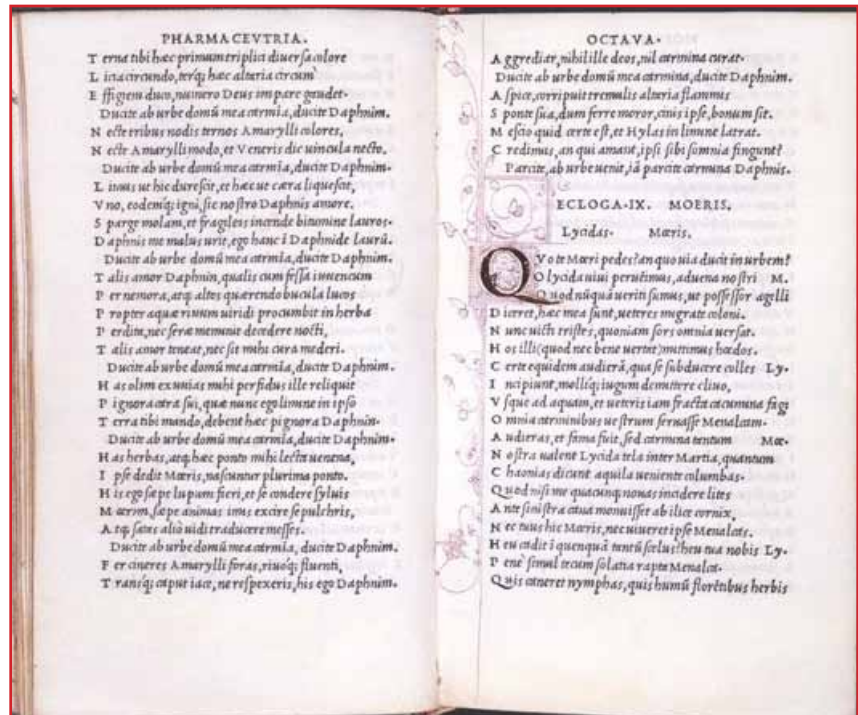 PHARMACEVTRIA.
T erna tibi hæc primum triplici diuersa colore
L icia circundo, terq; hæc altaria circum
E ffigiem duco, numero Deus impare gaudet.
Ducite ab urbe domū mea carmīa, ducite Daphnim.
N ecte tribus nodis ternos Amarylli colores,
N ecte Amarylli modo, et Veneris dic uincula necto.
Ducite ab urbe domū mea carmīa, ducite Daphnim.
L imus ut hic durescit, et hæc ut cæra liquescit,
V no, eodemq; igni, sic nostro Daphnis amore.
S parge molam, et fragileis incende bitumine lauros.
D aphnis me malus urit, ego hanc ī Daphnide laurū.
Ducite ab urbe domū mea carmīa, ducite Daphnim.
T alis amor Daphnin, qualis cum fessa iuuencum
P er nemora, atq; altos quærendo bucula lucos
P ropter aquæ riuum uiridi procumbit in herba
P erdita, nec seræ meminit decedere nocti,
T alis amor teneat, nec sit mihi cura mederi.
Ducite ab urbe domū mea carmīa, ducite Daphnim.
H as olim exuuias mihi perfidus ille reliquit
P ignora cara sui, quæ nunc ego limine in ipso
T erra tibi mando, debent hæc pignora Daphnin.
Ducite ab urbe domū mea carmīa, ducite Daphnim.
H as herbas, atq; hæc ponto mihi lecta uenena,
I pse dedit Mœris, nascuntur plurima ponto.
H is ego sæpe lupum fieri, et se condere syluis
M œrim, sæpe animas imis excire sepulchris,
A tq; satas aliò uidi traducere messes.
Ducite ab urbe domū mea carmīa, ducite Daphnim.
F er cineres Amarylli foras, riuoq; fluenti,
T ransq; caput iace, ne respexeris, his ego Daphnim.
OCTAVA.
A ggrediar, nihil ille deos, nil carmina curat.
Ducite ab urbe domū mea carmina, ducite Daphnim.
A spice, corripuit tremulis altaria flammis
S ponte sua, dum ferre moror, cinis ipse, bonum sit.
N escio quid certe est, et Hylas in limine latrat.
C redimus, an qui amant, ipsi sibi somnia fingunt?
Parcite, ab urbe uenit, iā parcite carmina Daphnis.
ECLOGA.IX. MOERIS.
Lycidas. Mœris.
QVo te Mœri pedes? an quo uia ducit in urbem?
O lycida uiui peruēimus, aduena nostri M.
Quod nūquā ueriti sumus, ut possessor agelli
D iceret, hæc mea sunt, ueteres migrate coloni.
N unc uicti tristes, quoniam fors omnia uersat.
H os illi (quod nec bene uertat) mittimus hœdos.
C erte equidem audierā, qua se subducere colles Ly.
I ncipiunt, molliq; iugum demittere cliuo,
V sque ad aquam, et ueteris iam fracta cacumina fagi
O mnia carminibus uestrum seruasse Menalcam.
A udieras, et fama fuit, sed carmina tantum Mœ.
N ostra ualent Lycida tela inter Martia, quantum
C haonias dicunt aquila ueniente columbas.
Q uod nisi me quacunq; nouas incidere lites
A nte sinistra caua monuisset ab ilice cornix,
N ec tuus hic Mœris, nec uiueret ipse Menalcas.
H eu cadit ī quenquā tantū scelus? heu tua nobis Ly.
P ene simul tecum solatia rapta Menalca.
Q uis caneret nymphas, quis humū florētibus herbis